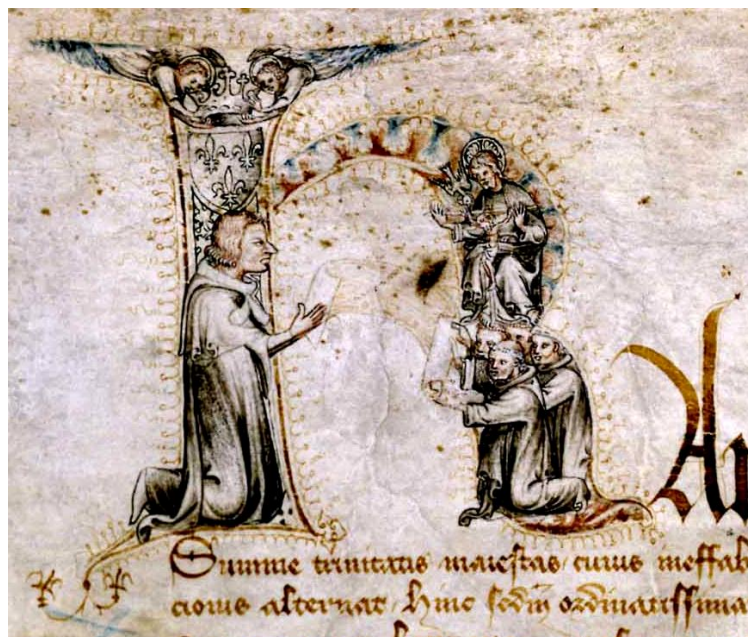 KAr
Summe trinitatis maiestas cuius ineffab
alternat hinc ordinatissima